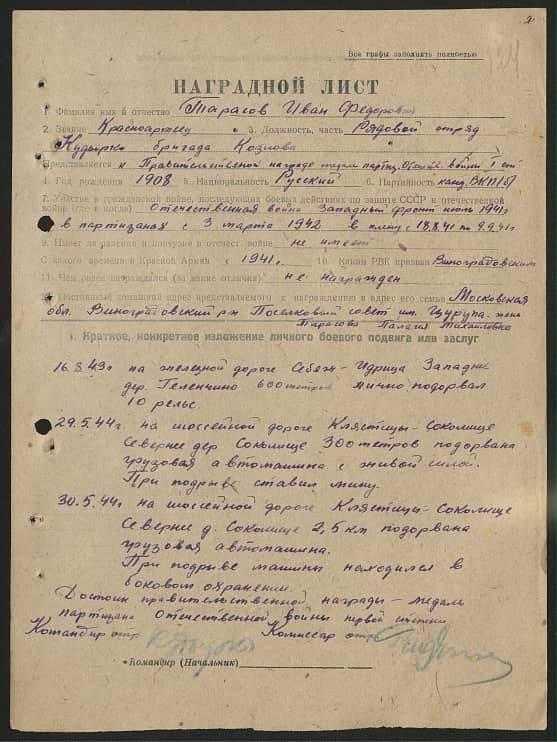 Все графы заполнять полностью
НАГРАДНОЙ ЛИСТ
1. Фамилия имя и отчество Тарасов Иван Федорович
2. Звание Красноармеец 3. Должность, часть Рядовой отряд
бригада Козлова
Представляется к Правительственой награде медали партиз. Отечеств. войны 1 ст
4. Год рождения 1908 5. Национальность Русский 6. Партийность канд. ВКП(б)
7. Участие в гражданской войне, последующих боевых действиях по защите СССР и отечественной
войне (где и когда) Отечественная война Западный фронт июль 1941г
в партизанах с 3 марта 1942 в плену с 18.8.41 по 9.9.41
9. Имеет ли ранения и контузии в отечест. войне не имеет
С какого времени в Красной Армии с 1941г. 10. Каким РВК призван Виноградовским
11. Чем ранее награжден (за какие отличия) не награжден
12. Постоянный домашний адрес представляемого к награждению и адрес его семьи Московская
обл. Виноградовский р-н Поселковый совет им. Цурупа. жена
Тарасова Палагея Михайловна
I. Краткое, конкретное изложение личного боевого подвига или заслуг
16.8.43г на железной дороге Себеж-Идрица Западне
дер. Геленчино 600 метров лично подорвал
10 рельс.
29.5.44г. на шоссейной дороге Клястицы-Соколище
Севернее дер Соколище 300 метров подорвана
грузовая автомашина с живой силой.
При подрыве ставил мину.
30.5.44г на шоссейной дороге Клястицы-Соколище
Севернее д. Соколище 2,5 км подорвана
грузовая автомашина.
При подрыве машины находился в
боковом охранении.
Достоин правительственной награды-медаль
партизана Отечественной войны первой степени
Командир отр Комиссар отр
Командир (Начальник)